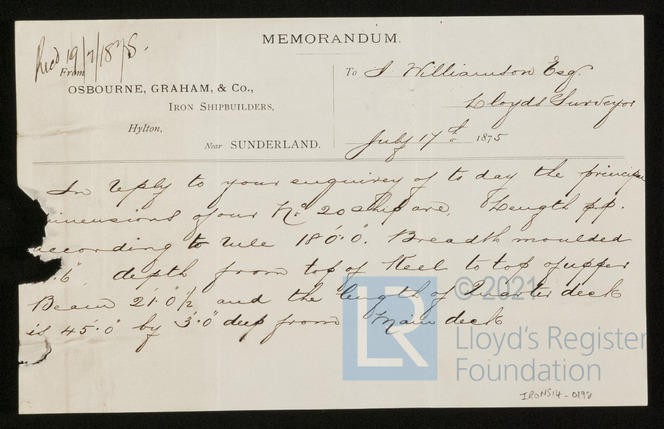 MEMORANDUM.
Recd 19/7/1875.
From
OSBOURNE, GRAHAM, & Co.,
IRON SHIPBUILDERS,
Hylton,
Near SUNDERLAND.
To J. Williamson Esq.
Lloyds Surveyor
July 17th 1875
In reply to your enquirey of to day the principa
imensions of our No 20 ship are. Length pp.
ccording to rule 180'.0". Breadth moulded
.6" depth from top of Keel to top of upper
Beam 21'.0½ and the length of Quarter deck
is 45'.0" by 3'.0" deep from Main deck
© 2021
LR
Lloyd's Register
Foundation
IRON514-0198